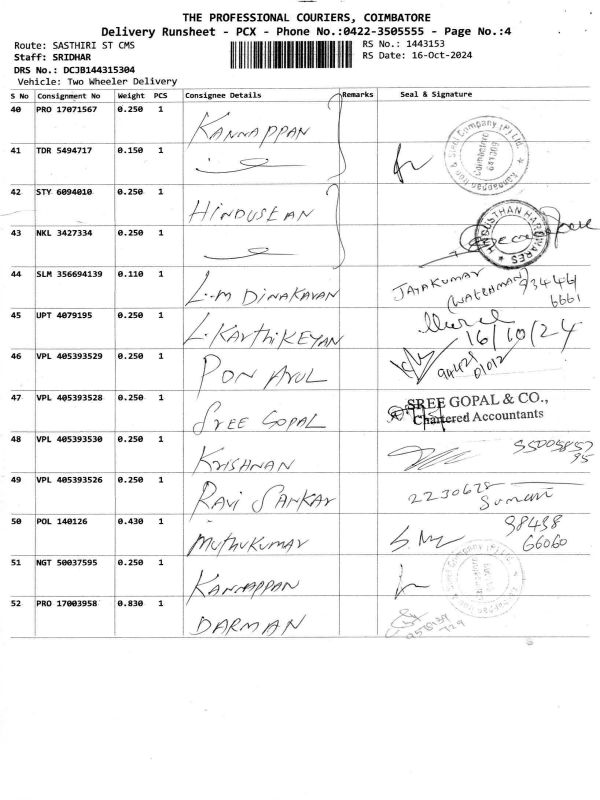 THE PROFESSIONAL COURIERS, COIMBATORE
Delivery Runsheet - PCX - Phone No.:0422-3505555 - Page No.:4
Route: SASTHIRI ST CMS
RS No.: 1443153
Staff: SRIDHAR
RS Date: 16-Oct-2024
DRS No.: DCJB144315304
Vehicle: Two Wheeler Delivery
S No Consignment No Weight PCS Consignee Details Remarks Seal & Signature
40 PRO 17071567 0.250 1 KANNAPPAN
41 TDR 5494717 0.150 1 Kannappan Iron & Steel Company (P) Ltd. Coimbatore
42 STY 6094010 0.250 1 HINDUSTAN
43 NKL 3427334 0.250 1 HINDUSTHAN HARDWARES
44 SLM 356694139 0.110 1 L.M DINAKARAN JAYAKUMAR (WATCHMAN) 93446 6661
45 UPT 4079195 0.250 1 L. KARTHIKEYAN 16/10/24
46 VPL 405393529 0.250 1 PON ARUL
47 VPL 405393528 0.250 1 SREE GOPAL SREE GOPAL & CO.,
Chartered Accountants
48 VPL 405393530 0.250 1 KRISHNAN
49 VPL 405393526 0.250 1 RAVI SANKAR 2230678
50 POL 140126 0.430 1 MUTHUKUMAR 98438
66060
51 NGT 50037595 0.250 1 KANNAPPAN
52 PRO 17003958 0.830 1 DARMAN